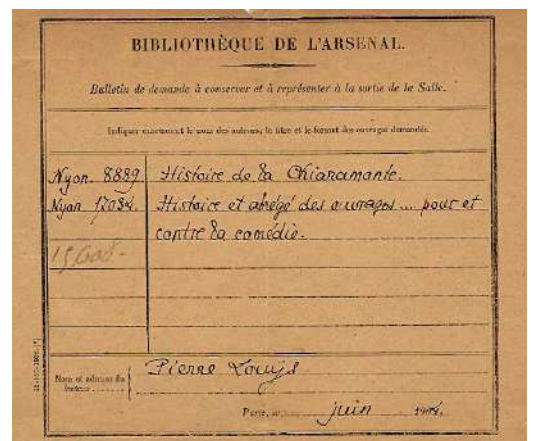 BIBLIOTHÈQUE DE L'ARSENAL.
Bulletin de demande à conserver et à représenter à la sortie de la Salle.
Indiquer exactement le nom des auteurs, le titre et le format des ouvrages demandés.
Nyon. 8889 Histoire de la Chiaramonte.
Nyon 17034. Histoire et abrégé des ouvrages ... pour et
contre la comédie.
Nom et adresse du
lecteur
Pierre Louÿs
Paris, juin